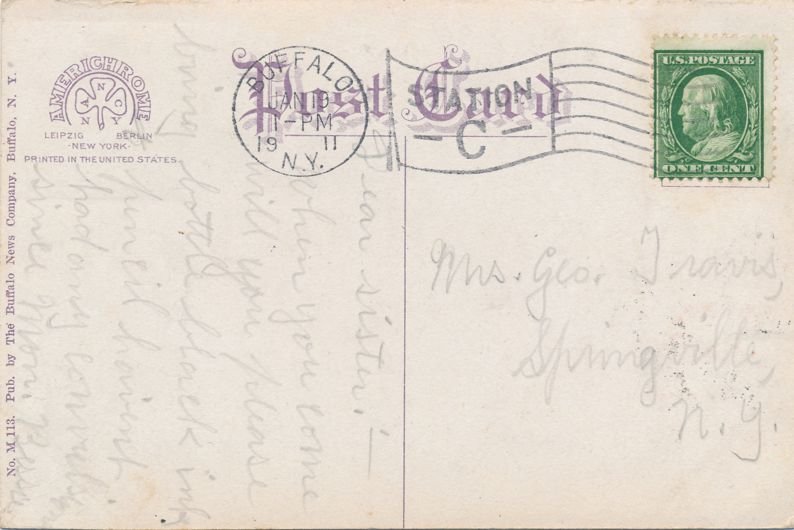 Post Card
AMERICHROME
ANNOY
LEIPZIG BERLIN
-NEW YORK-
PRINTED IN THE UNITED STATES.
No. M 113. Pub. by The Buffalo News Company, Buffalo, N. Y.
BUFFALO
JAN 19
11-PM
19 11
N.Y.
STATION
-C-
U.S. POSTAGE
ONE CENT
Mrs. Geo. Travis,
Springville,
N.Y.
Dear sister:-
when you come
will you please
bring bottle black ink
pencil havent
had any
since